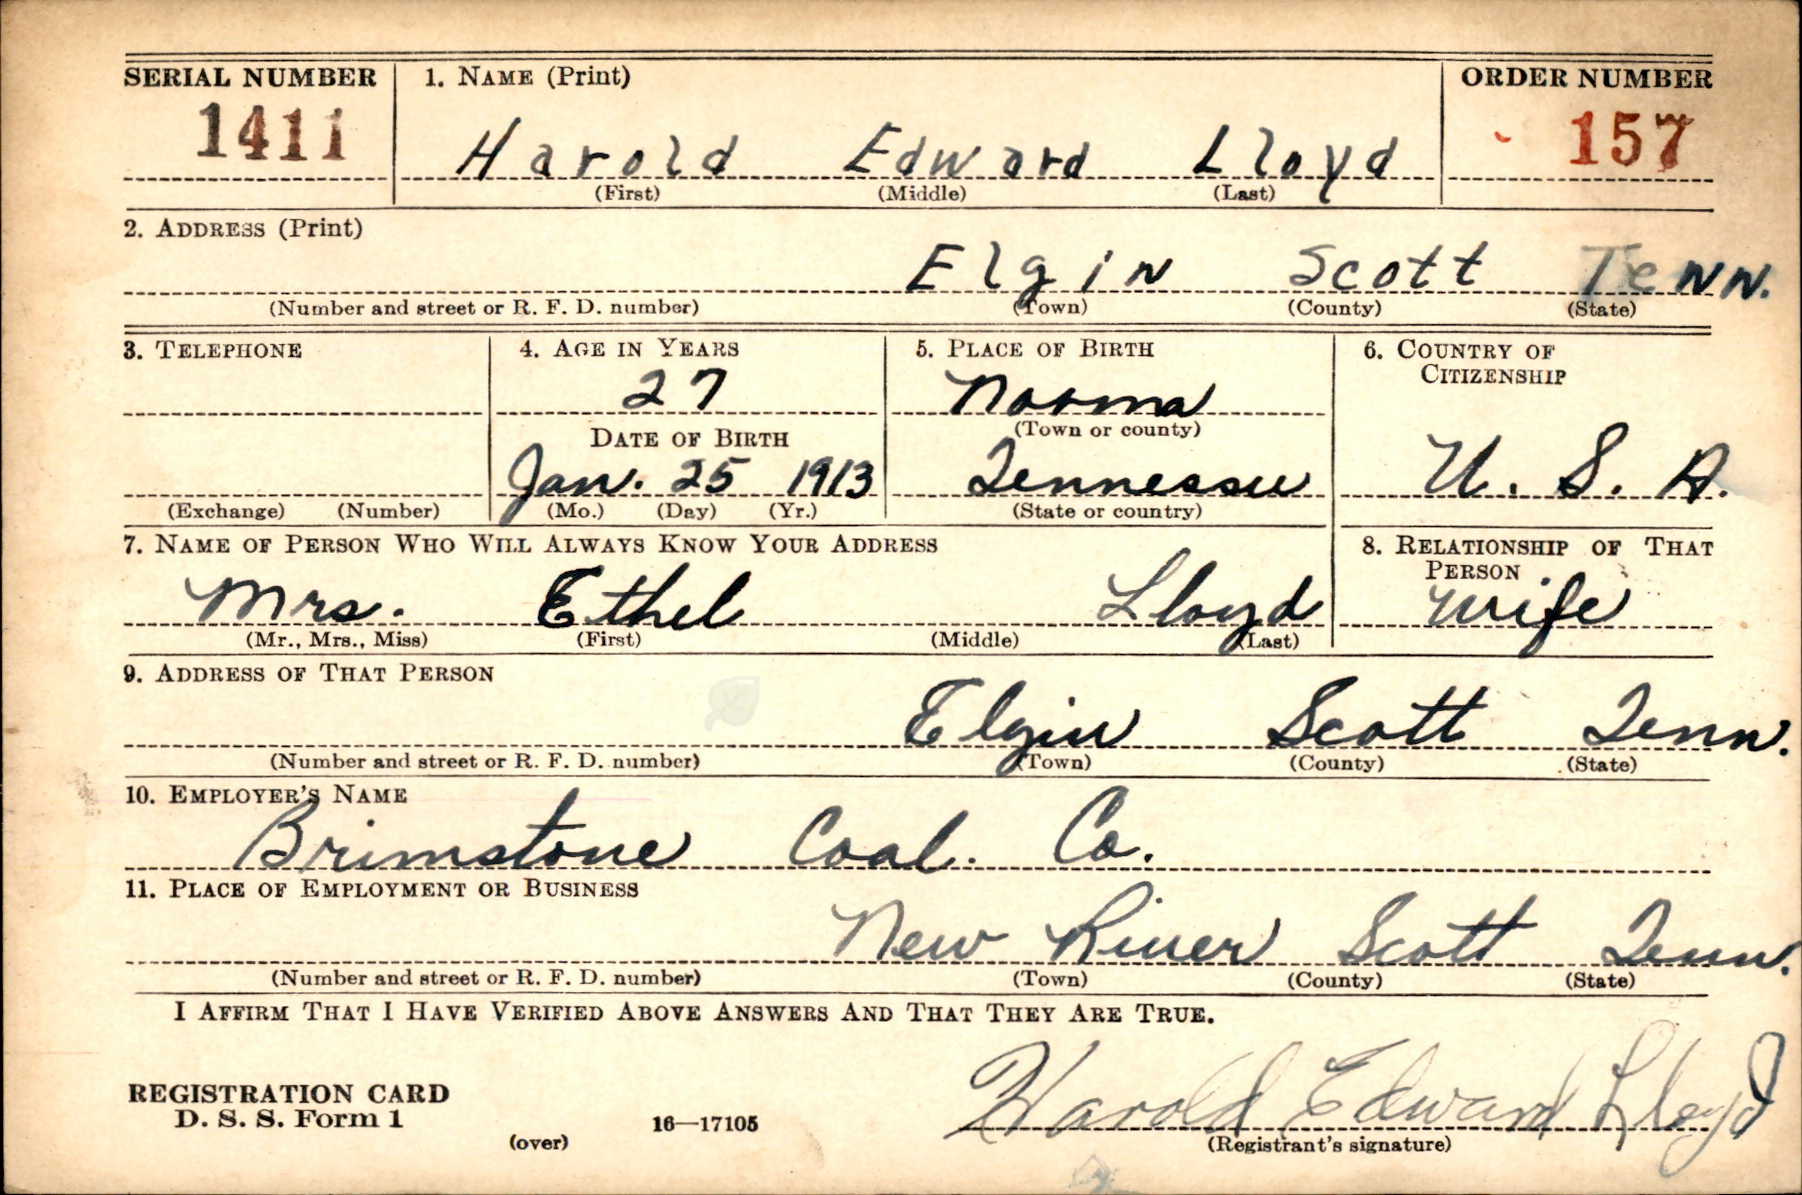 SERIAL NUMBER 1. NAME (Print) ORDER NUMBER
1411 Harold Edward Lloyd 157
(First) (Middle) (Last)
2. ADDRESS (Print)
Elgin Scott Tenn.
(Number and street or R. F. D. number) (Town) (County) (State)
3. TELEPHONE 4. AGE IN YEARS 5. PLACE OF BIRTH 6. COUNTRY OF
CITIZENSHIP
27 Norma
DATE OF BIRTH (Town or county)
Jan. 25 1913 Tennessee U. S. A.
(Exchange) (Number) (Mo.) (Day) (Yr.) (State or country)
7. NAME OF PERSON WHO WILL ALWAYS KNOW YOUR ADDRESS 8. RELATIONSHIP OF THAT
PERSON
Mrs. Ethel Lloyd wife
(Mr., Mrs., Miss) (First) (Middle) (Last)
9. ADDRESS OF THAT PERSON
Elgin Scott Tenn.
(Number and street or R. F. D. number) (Town) (County) (State)
10. EMPLOYER'S NAME
Brimstone Coal. Co.
11. PLACE OF EMPLOYMENT OR BUSINESS
New River Scott Tenn.
(Number and street or R. F. D. number) (Town) (County) (State)
I AFFIRM THAT I HAVE VERIFIED ABOVE ANSWERS AND THAT THEY ARE TRUE.
Harold Edward Lloyd
REGISTRATION CARD
D. S. S. Form 1 16—17105
(over) (Registrant's signature)